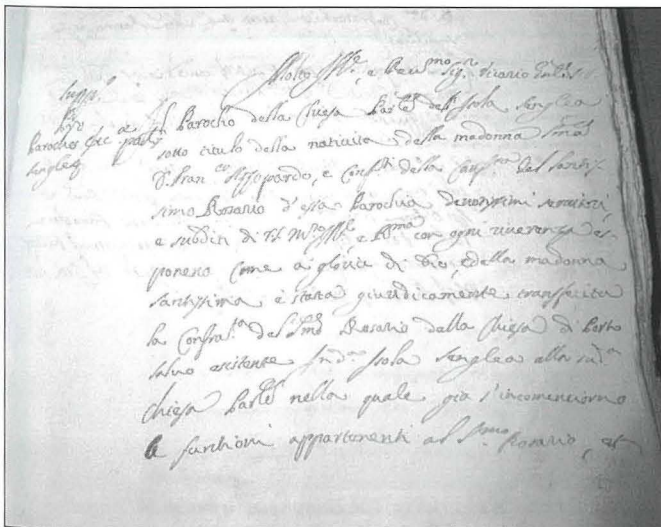 Supp.º
Pro
Parocho Eccᵃᵉ Parlᵉ
Senglea
Molto Illᵉ, e Revᵐᵒ Sigʳ Vicario Genˡᵉ
Il Parocho della Chiesa Parˡᵉ dell' Isola Senglea
sotto titulo della natività della madonna Sᵐᵃ
D. Franᶜᵒ Azzopardo, e Consˡⁱ della Confʳⁿᵃ del Santis-
simo Rosario d'essa Parochia devotissimi servitori,
e subditi di V. S. Mᵗᵒ Illᵉ e Rᵐᵃ con ogni riverenza es-
ponero come a gloria di Dio, e della madonna
santissima è stata giuridicamente transferita
la Confraᵗᵃ del Smõ Rosario dalla Chiesa di Porto
Salvo esistente Indᵃ Isola Senglea alla sudᵃ
Chiesa Parlᵉ nella quale già s'incomenciorno
le funtioni appartenenti al Sᵐᵒ Rosario, et